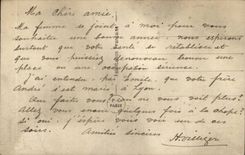 Ma chère amie
Ma femme se joint à moi pour vous
souhaiter une bonne année, nous espérons
surtout que votre santé se rétablisse et
que vous puissiez dénouveau trouver une
place ou une occupation
J'ai entendu par Emile, que votre frère
André s'est marié à Lyon.
Que faites vous, on ne vous voit plus?
Allez vous encore quelques fois à la
Si oui, j'espère vous voir un de ces
soirs.
Amitiés sincères